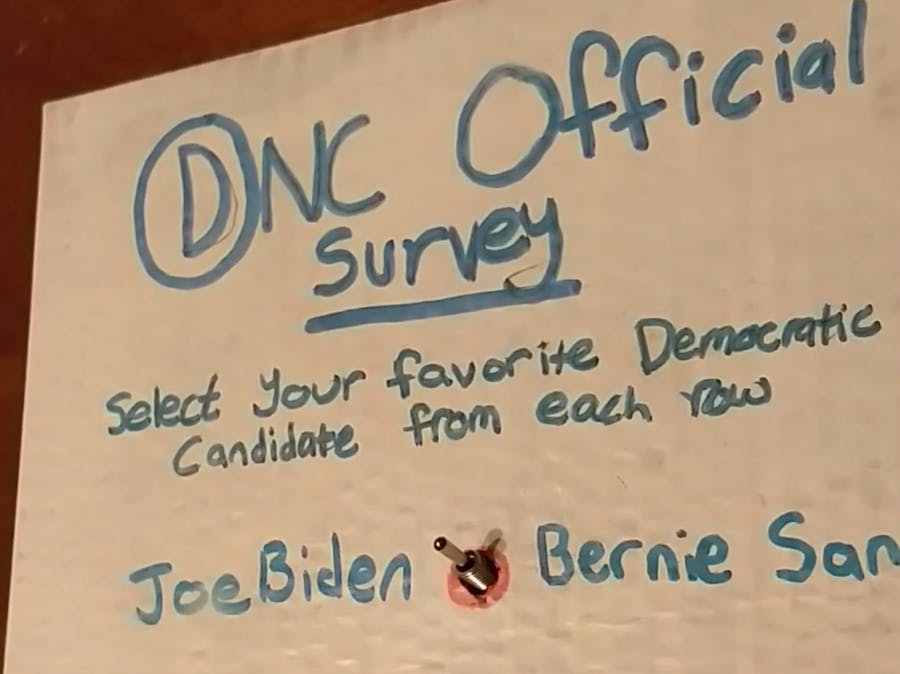 DNC Official
Survey
Select your favorite Democratic
Candidate from each row
Joe Biden Bernie San